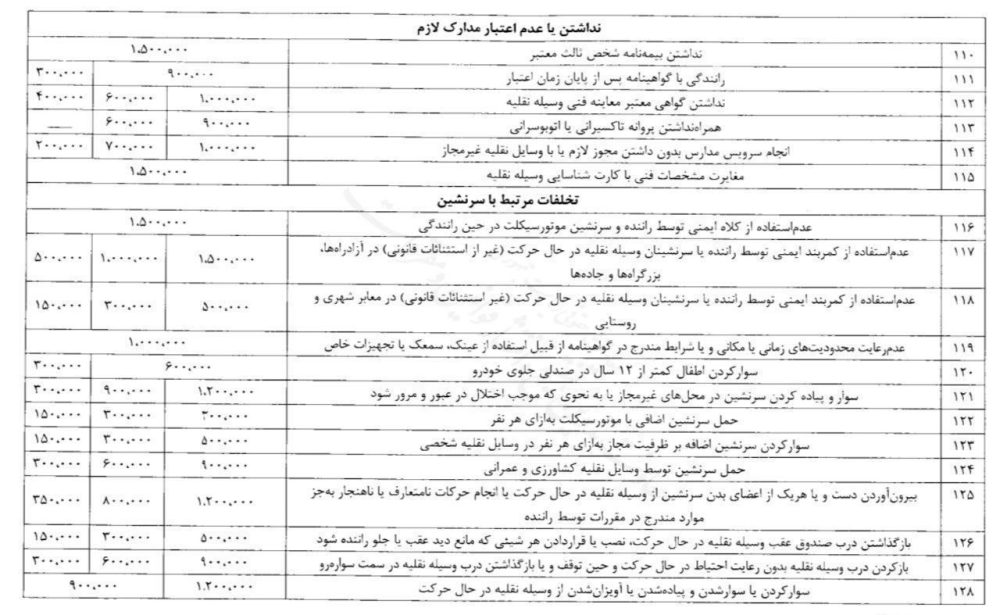 نداشتن یا عدم اعتبار مدارک لازم
۱۱۰ نداشتن بیمه‌نامه شخص ثالث معتبر ۱،۵۰۰،۰۰۰
۱۱۱ رانندگی با گواهینامه پس از پایان زمان اعتبار ۹۰۰،۰۰۰ ۳۰۰،۰۰۰
۱۱۲ نداشتن گواهی معتبر معاینه فنی وسیله نقلیه ۱،۰۰۰،۰۰۰ ۶۰۰،۰۰۰ ۴۰۰،۰۰۰
۱۱۳ همراه‌نداشتن پروانه تاکسیرانی یا اتوبوسرانی ۹۰۰،۰۰۰ ۶۰۰،۰۰۰ —
۱۱۴ انجام سرویس مدارس بدون داشتن مجوز لازم یا با وسایل نقلیه غیرمجاز ۱،۰۰۰،۰۰۰ ۷۰۰،۰۰۰ ۲۰۰،۰۰۰
۱۱۵ مغایرت مشخصات فنی با کارت شناسایی وسیله نقلیه ۱،۵۰۰،۰۰۰
تخلفات مرتبط با سرنشین
۱۱۶ عدم‌استفاده از کلاه ایمنی توسط راننده و سرنشین موتورسیکلت در حین رانندگی ۱،۵۰۰،۰۰۰
۱۱۷ عدم‌استفاده از کمربند ایمنی توسط راننده یا سرنشینان وسیله نقلیه در حال حرکت (غیر از استثنائات قانونی) در آزادراه‌ها، ۱،۵۰۰،۰۰۰ ۱،۰۰۰،۰۰۰ ۵۰۰،۰۰۰
بزرگراه‌ها و جاده‌ها
۱۱۸ عدم‌استفاده از کمربند ایمنی توسط راننده یا سرنشینان وسیله نقلیه در حال حرکت (غیر استثنائات قانونی) در معابر شهری و ۵۰۰،۰۰۰ ۳۰۰،۰۰۰ ۱۵۰،۰۰۰
روستایی
۱۱۹ عدم‌رعایت محدودیت‌های زمانی یا مکانی و یا شرایط مندرج در گواهینامه از قبیل استفاده از عینک، سمعک یا تجهیزات خاص ۱،۰۰۰،۰۰۰
۱۲۰ سوارکردن اطفال کمتر از ۱۲ سال در صندلی جلوی خودرو ۶۰۰،۰۰۰ ۳۰۰،۰۰۰
۱۲۱ سوار و پیاده کردن سرنشین در محل‌های غیرمجاز یا به نحوی که موجب اختلال در عبور و مرور شود ۱،۲۰۰،۰۰۰ ۹۰۰،۰۰۰ ۳۰۰،۰۰۰
۱۲۲ حمل سرنشین اضافی با موتورسیکلت به‌ازای هر نفر ۳۰۰،۰۰۰ ۱۵۰،۰۰۰
۱۲۳ سوارکردن سرنشین اضافه بر ظرفیت مجاز به‌ازای هر نفر در وسایل نقلیه شخصی ۵۰۰،۰۰۰ ۳۰۰،۰۰۰ ۱۵۰،۰۰۰
۱۲۴ حمل سرنشین توسط وسایل نقلیه کشاورزی و عمرانی ۹۰۰،۰۰۰ ۶۰۰،۰۰۰ ۳۰۰،۰۰۰
۱۲۵ بیرون‌آوردن دست و یا هریک از اعضای بدن سرنشین از وسیله نقلیه در حال حرکت یا انجام حرکات نامتعارف یا ناهنجار به‌جز ۱،۲۰۰،۰۰۰ ۸۰۰،۰۰۰ ۳۵۰،۰۰۰
موارد مندرج در مقررات توسط راننده
۱۲۶ بازگذاشتن درب صندوق عقب وسیله نقلیه در حال حرکت، نصب یا قراردادن هر شیئی که مانع دید عقب یا جلو راننده شود ۵۰۰،۰۰۰ ۳۰۰،۰۰۰ ۱۵۰،۰۰۰
۱۲۷ بازکردن درب وسیله نقلیه بدون رعایت احتیاط در حال حرکت و حین توقف و یا بازگذاشتن درب وسیله نقلیه در سمت سواره‌رو ۹۰۰،۰۰۰ ۶۰۰،۰۰۰ ۳۰۰،۰۰۰
۱۲۸ سوارکردن یا سوارشدن و پیاده‌شدن یا آویزان‌شدن از وسیله نقلیه در حال حرکت ۱،۲۰۰،۰۰۰ ۹۰۰،۰۰۰